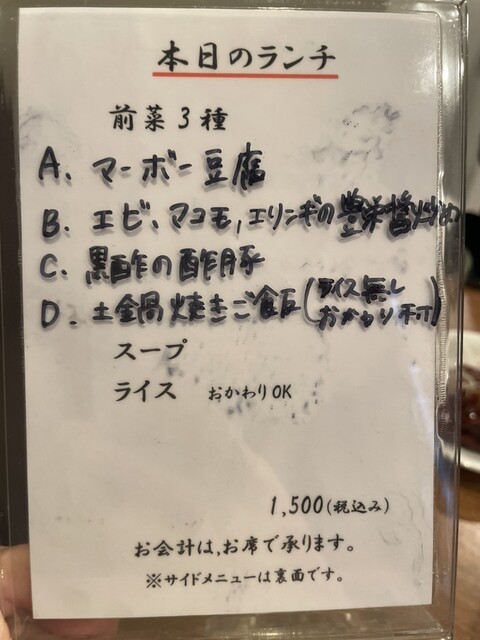 本日のランチ
前菜3種
A. マーボー豆腐
B. エビ、マコモ、エリンギの豊栄醤炒め
C. 黒酢の酢豚
D. 土鍋焼きご飯(ライス無し おかわり不可)
スープ
ライス おかわりOK
1,500(税込み)
お会計は、お席で承ります。
※サイドメニューは裏面です。